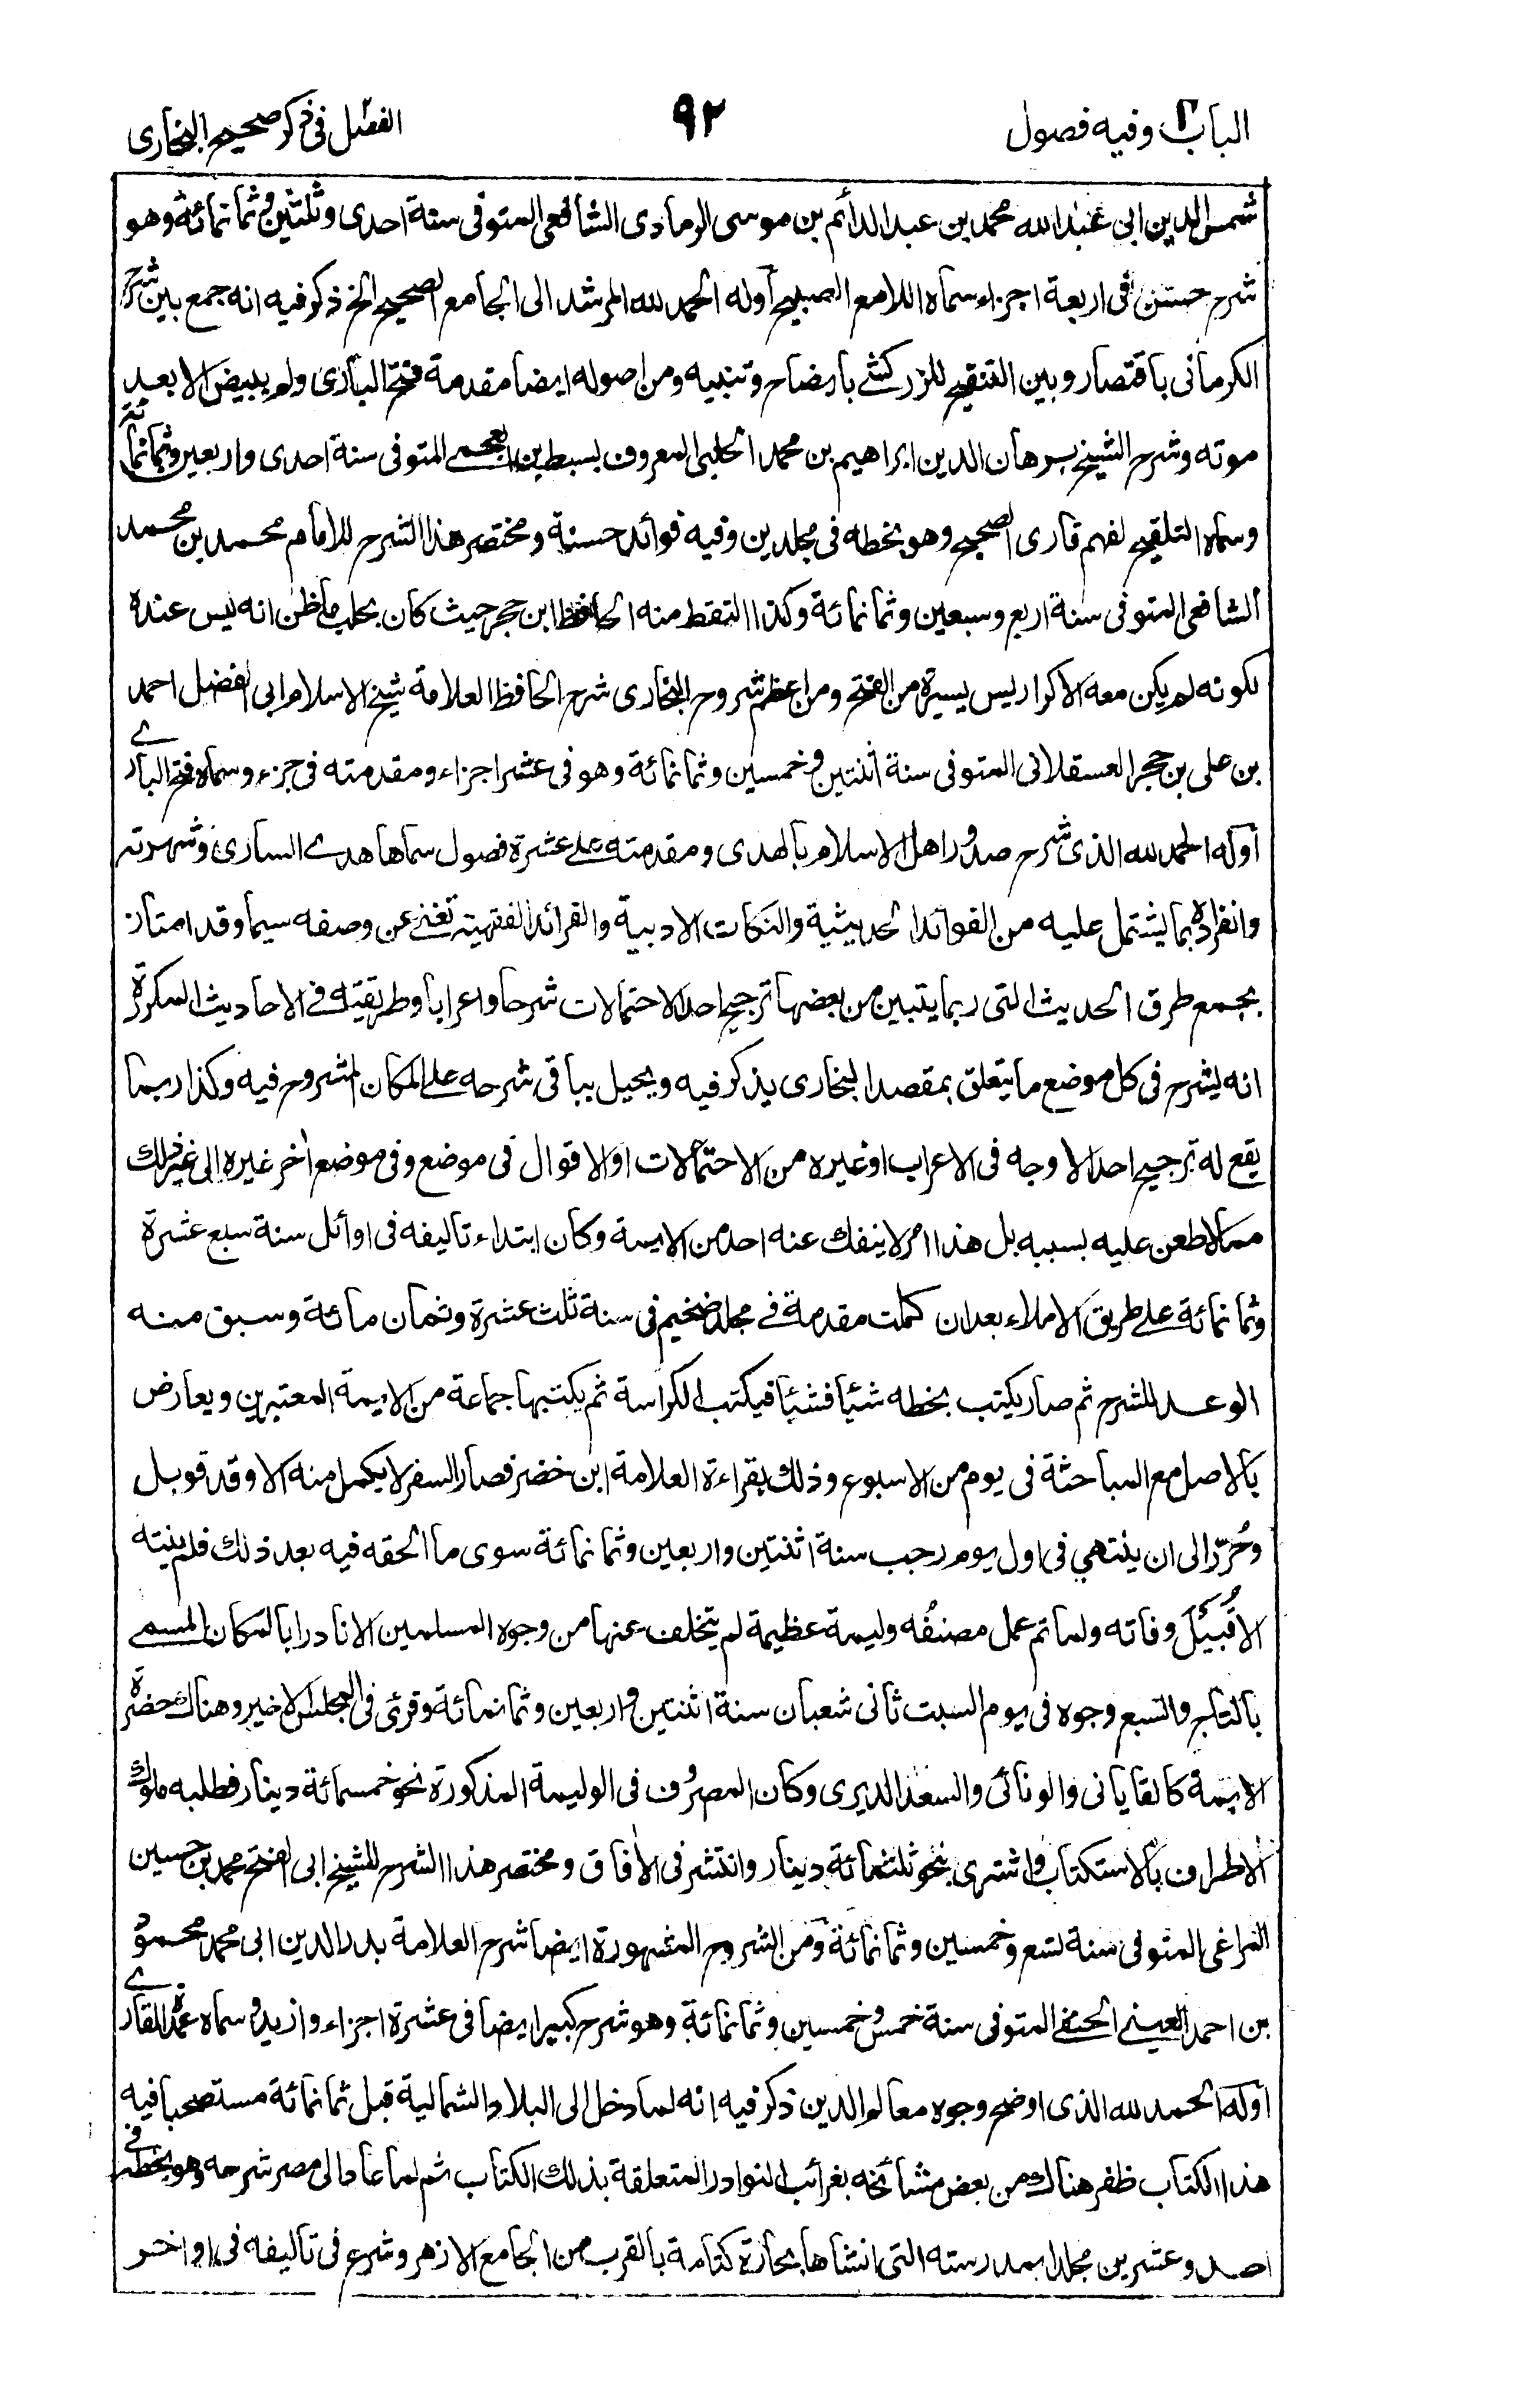 الباب٢ وفيه فصول
٩٢
الفصل فى ذكر صحيح البخارى
شمس الدين ابى عبد الله محمد بن عبد الدائم بن موسى الرمادى الشافعى المتوفى سنة احدى وثلثين وثمانمائة وهو
شرح حسن فى اربعة اجزاء سماه اللامع الصبيح اوله الحمد لله المرشد الى الجامع الصحيح الخ ذكر فيه انه جمع بين شرح
الكرمانى باقتصار وبين التنقيح للزركشے بايضاح وتنبيه ومن اصوله ايضا مقدمة فتح البارى ولم يبيض الا بعد
موته وشرح الشيخ برهان الدين ابراهيم بن محمد الحلبى المعروف بسبط بن العجمے المتوفى سنة احدى واربعين وثمانمائة
وسماه التلقيح لفهم قارى الصحيح وهو بخطه فى مجلدين وفيه فوائد حسنة ومختصر هذا الشرح للامام محمد بن محمد
الشافعى المتوفى سنة اربع وسبعين وثمانمائة وكذا التقط منه الحافظ ابن حجر حيث كان بحلب ما ظن انه ليس عنده
لكونه لم يكن معه الا كراريس يسيرة من الفتح ومن اعظم شروح البخارى شرح الحافظ العلامة شيخ الاسلام ابى الفضل احمد
بن على بن حجر العسقلانى المتوفى سنة اثنتين وخمسين وثمانمائة وهو فى عشر اجزاء ومقدمته فى جزء وسماه فتح البارے
اوله الحمد لله الذى شرح صدور اهل الاسلام بالهدى ومقدمته علے عشرة فصول سماها هدے السارى وشهرته
وانفراده بما يشتمل عليه من الفوائد الحديثية والنكات الادبية والفرائد الفقهية تغنے عن وصفه سيما وقد امتاز
بجمع طرق الحديث التى ربما يتبين من بعضها ترجيح احد الاحتمالات شرحا واعرابا وطريقته فے الاحاديث المكررة
انه يشرح فى كل موضع ما يتعلق بمقصد البخارى يذكر فيه ويحيل بباقى شرحه علے المكان المشروح فيه وكذا ربما
يقع له ترجيح احد الاوجه فى الاعراب او غيره من الاحتمالات او الاقوال فى موضع وفى موضع اخر غيره الى غير ذلك
مما لا طعن عليه بسببه بل هذا امر لا ينفك عنه احد من الايمة وكان ابتداء تاليفه فى اوائل سنة سبع عشرة
وثمانمائة علے طريق الاملاء بعد ان كملت مقدمة فے مجلد ضخيم فى سنة ثلث عشرة وثمان مائة وسبق منه
الوعد للشرح ثم صار يكتب بخطه شيئا فشيئا فيكتب الكراسة ثم يكتبها جماعة من الايمة المعتبرين ويعارض
بالاصل مع المباحثة فى يوم من الاسبوع وذلك بقراءة العلامة ابن خضر فصار السفر لا يكمل منه الا وقد قوبل
وحُرّر الى ان ينتهي فى اول يوم رجب سنة اثنتين واربعين وثمانمائة سوى ما الحقه فيه بعد ذلك فلم ينته
الا قُبَيْلَ وفاته ولما تم عمل مصنفُه وليمة عظيمة لم يتخلف عنها من وجوه المسلمين الا نادرا بالمكان المسمے
بالتاج والسبع وجوه فى يوم السبت ثانى شعبان سنة اثنتين واربعين وثمانمائة وقرئ فى المجلس الاخير وهناك حضرة
الايمة كالقاياتى والونائى والسعد الديرى وكان المصروف فى الوليمة المذكورة نحو خمسمائة دينار فطلبه ملوك
الاطراف بالاستكتاب واشترى بنحو ثلثمائة دينار وانتشر فى الافاق ومختصر هذا الشرح للشيخ ابى الفتح محمد بن حسين
المراغى المتوفى سنة تسع وخمسين وثمانمائة ومن الشروح المشهورة ايضا شرح العلامة بدر الدين ابى محمد محمود
بن احمد العينے الحنفے المتوفى سنة خمس وخمسين وثمانمائة وهو شرح كبير ايضا فى عشرة اجزاء وازيد وسماه عمدة القارے
اوله الحمد لله الذى اوضح وجوه معالم الدين ذكر فيه انه لما دخل الى البلاد الشمالية قبل ثمانمائة مستصحبا فيه
هذا الكتاب ظفر هناك من بعض مشائخه بغرائب النوادر المتعلقة بذلك الكتاب ثم لما عاد الى مصر شرحه وهو بخطه فى
احد وعشرين مجلدا بمدرسته التى انشاها بحارة كتامة بالقرب من الجامع الازهر وشرع فى تاليفه فى اواخر